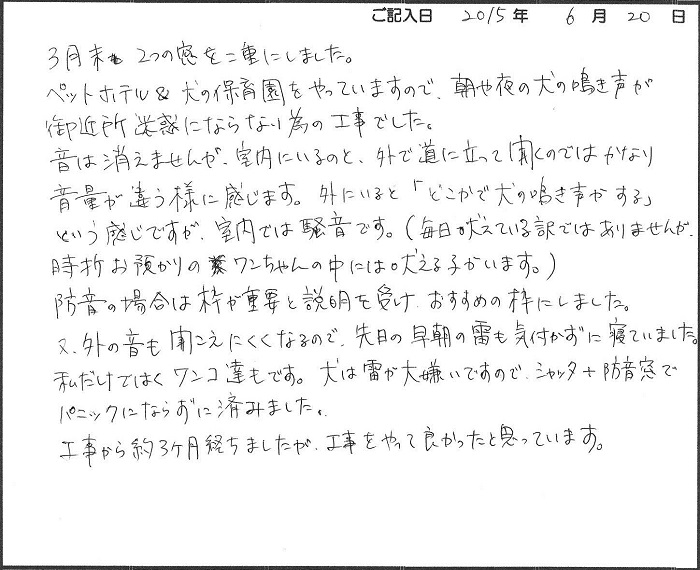 ご記入日 2015年 6月 20日
3月末 2つの窓を二重にしました。
ペットホテル&犬の保育園をやっていますので、朝や夜の犬の鳴き声が
御近所迷惑にならない為の工事でした。
音は消えませんが、室内にいるのと、外で道に立って聞くのではかなり
音量が違う様に感じます。外にいると「どこかで犬の鳴き声がする」
という感じですが、室内では騒音です。(毎日吠えている訳ではありませんが、
時折お預かりのワンちゃんの中には吠える子がいます。)
防音の場合は枠が重要と説明を受け、おすすめの枠にしました。
又、外の音も聞こえにくくなるので、先日の早朝の雷も気付かずに寝ていました。
私だけではくワンコ達もです。犬は雷が大嫌いですので、シャッター+防音窓で
パニックにならずに済みました。
工事から約3ヶ月経ちましたが、工事をやって良かったと思っています。